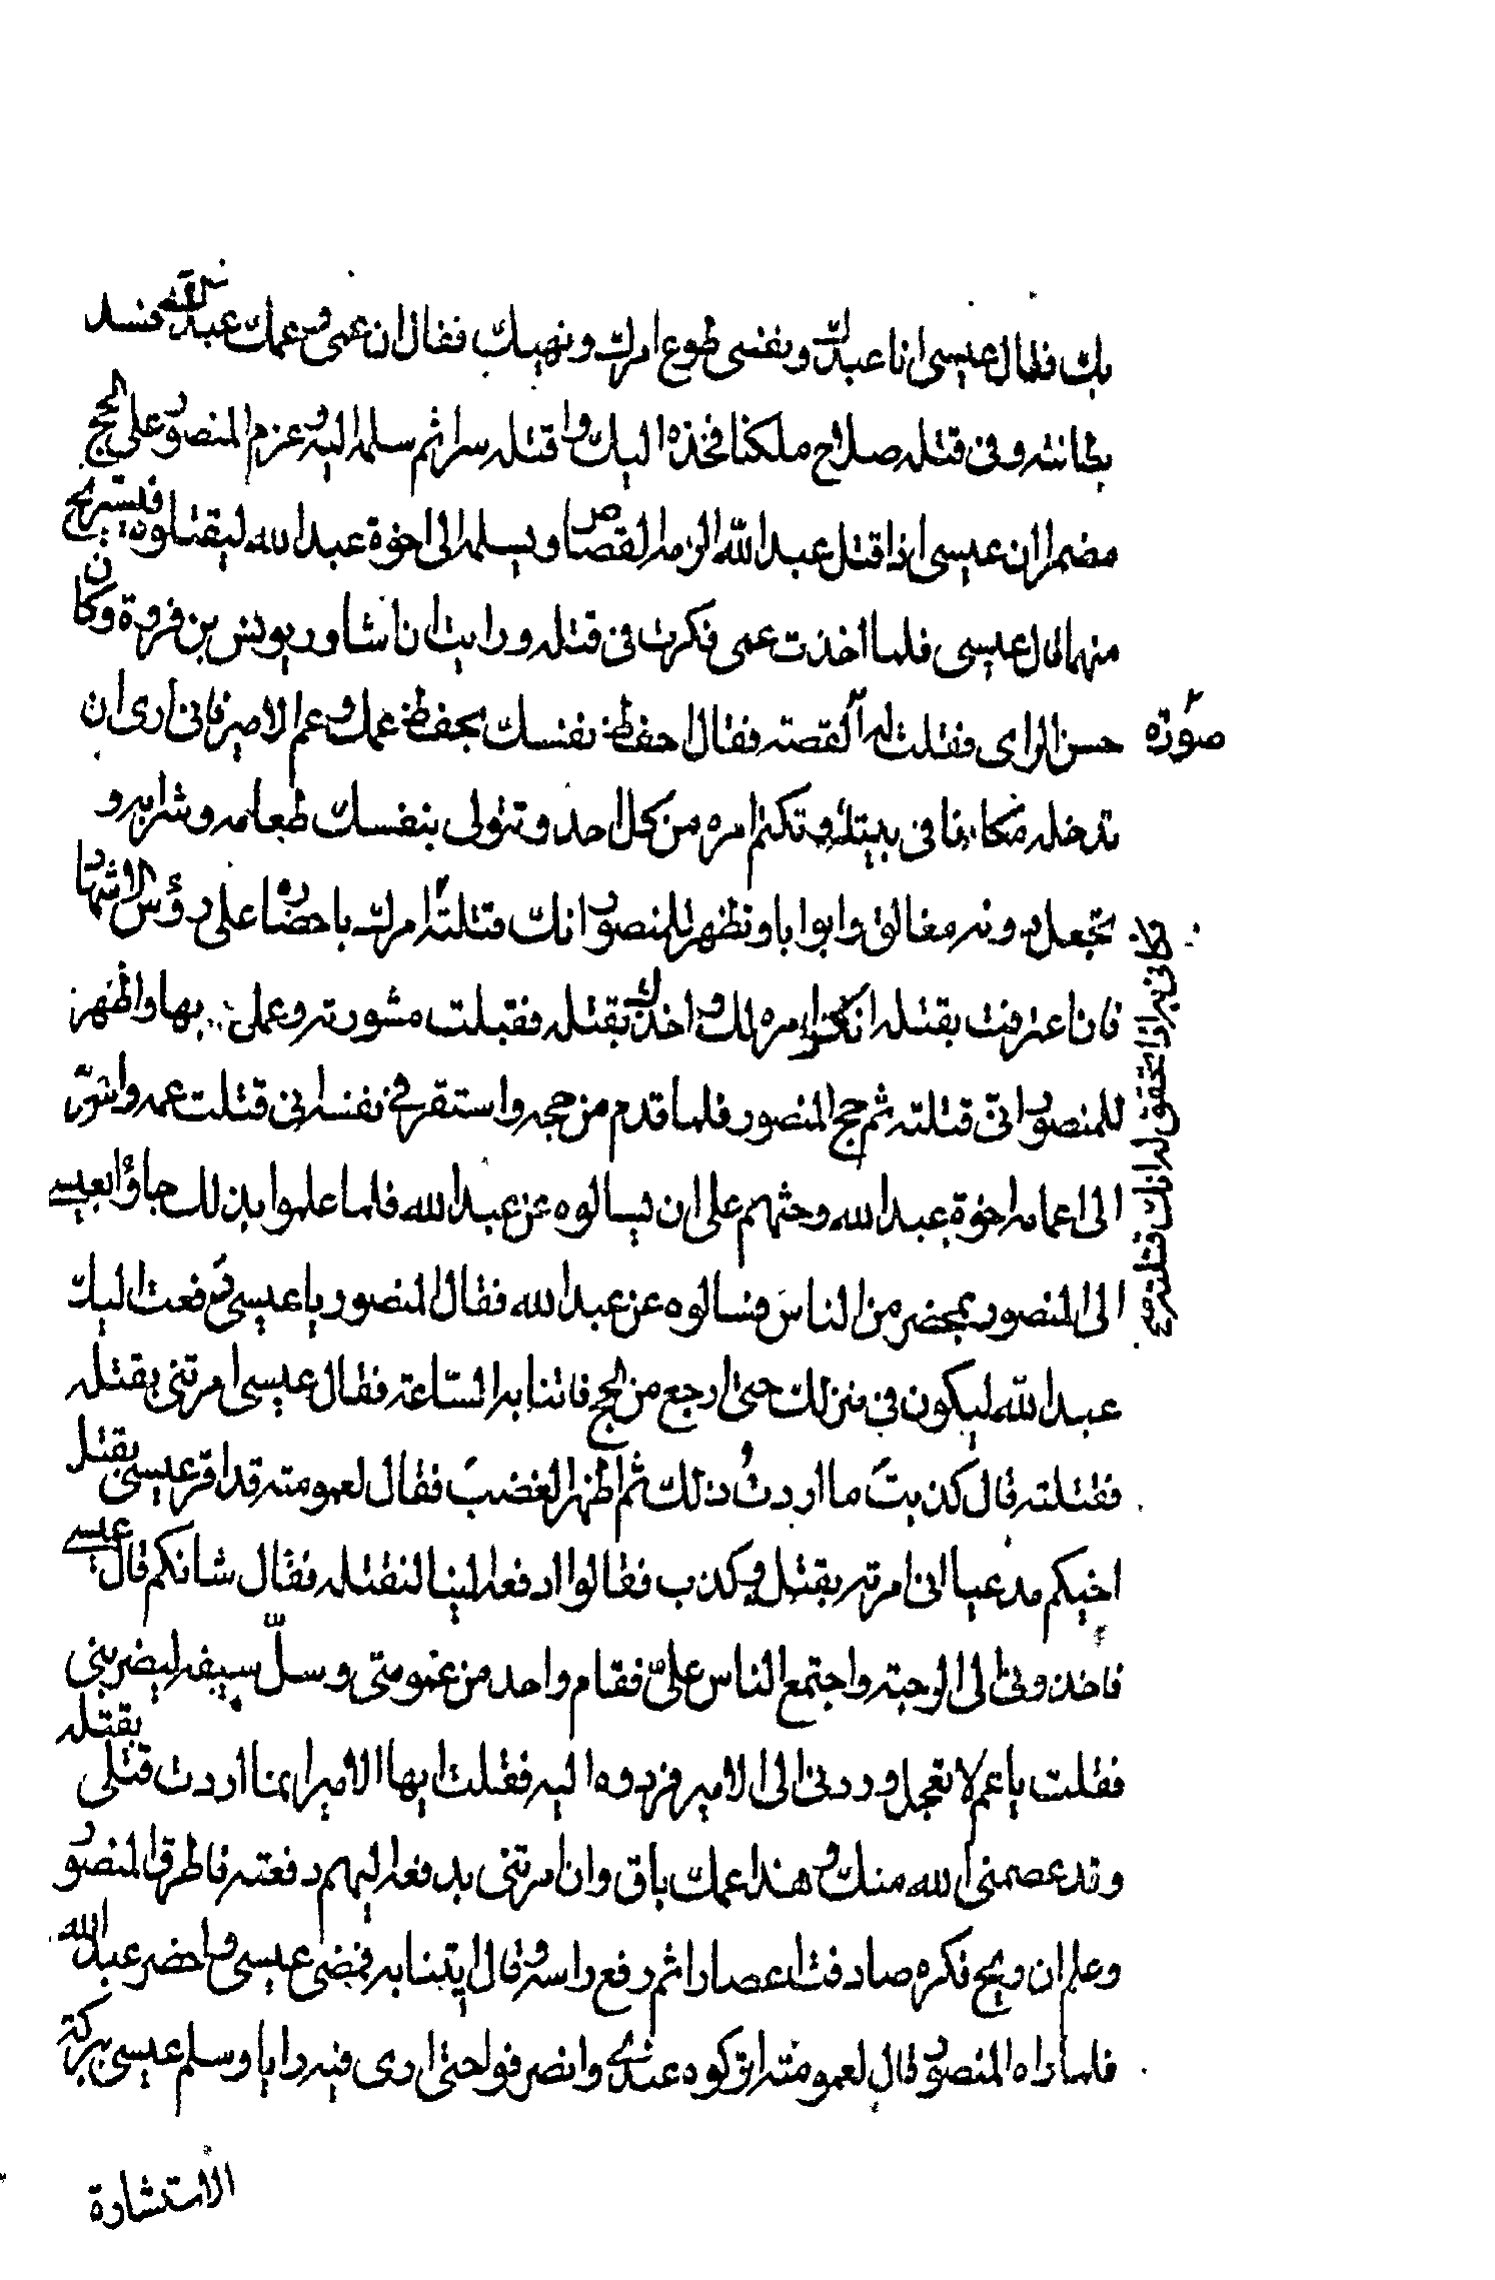 بك فقال عيسى انا عبدك ونفسى طوع امرك ونهيك فقال ان عمى وعمك عبد الله فسد
بطانته وفى قتله صلاح ملكنا فخذه اليك واقتله سرا ثم سلمه اليه وعزم المنصور على الحج
مضمرا ان عيسى اذا قتل عبد الله الزمه القصاص ويسلمه الى اخوة عبد الله ليقتلوه فيستريح
منهما قال عيسى فلما اخذت عمى فكرت فى قتله ورايت ان اشاور يونس بن فروة وكان
حسن الراى فقلت له القصة فقال احفظ نفسك بحفظ عمك وعم الامير فانى ارى ان
صورة
تدخله مكانا فى بيتك وتكتم امره من كل احد وتتولى بنفسك طعامه وشرابه و
تجعل دونه مغالق وابوابا وتظهر للمنصور انك قتلته امرك باحضاره على رؤس الاشهاد
فكانى به اذا تحقق له انك قتلته
فان اعترفت بقتله انكر امره لك واخذك بقتله فقبلت مشورته وعملت بها واظهرت
للمنصور انى قتلته ثم حج المنصور فلما قدم من حجه واستقر فى نفسه انى قتلت عمه
الى اعمامه اخوة عبد الله وحثهم على ان يسالوه عن عبد الله فلما علموا بذلك جاؤا بعيسى
الى المنصور بمحضر من الناس فسالوه عن عبد الله فقال المنصور يا عيسى دفعت اليك
عبد الله ليكون فى منزلك حتى ارجع من الحج فاتنا به الساعة فقال عيسى امرتنى بقتله
فقتلته قال كذبت ما اردت ذلك ثم اظهر الغضب فقال لعمومته قد اقر عيسى بقتل
اخيكم مدعيا انى امرته بقتله ويكذب فقالوا ادفعه الينا لنقتله فقال شانكم قال عيسى
فاخذونى الى الرحبة واجتمع الناس علىّ فقام واحد من عمومتى وسلّ سيفه ليضربنى
فقلت يا عم لا تعجل وردنى الى الامير فردوه اليه فقلت ايها الامير انما اردت قتلى بقتله
وقد عصمنى الله منك وهذا عمك باق وان امرتنى بدفعه اليهم دفعته فاطرق المنصور
وعلم ان ريح فكره صادفت اعصارا ثم رفع راسه وقال ايتنا به فمضى عيسى واحضر عبد الله
فلما راه المنصور قال لعمومته اتركوه عندى وانصرفوا حتى ارى فيه رايا وسلم عيسى ببركة
الاستشارة